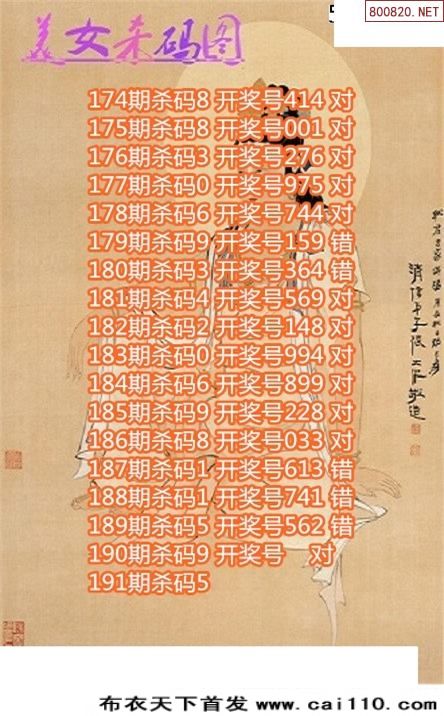 800820.NET
美女杀码图
174期杀码8 开奖号414 对
175期杀码8 开奖号001 对
176期杀码3 开奖号276 对
177期杀码0 开奖号975 对
178期杀码6 开奖号744 对
179期杀码9 开奖号159 错
180期杀码3 开奖号364 错
181期杀码4 开奖号569 对
182期杀码2 开奖号148 对
183期杀码0 开奖号994 对
184期杀码6 开奖号899 对
185期杀码9 开奖号228 对
186期杀码8 开奖号033 对
187期杀码1 开奖号613 错
188期杀码1 开奖号741 错
189期杀码5 开奖号562 错
190期杀码9 开奖号 对
191期杀码5
布衣天下首发 www.cai110.com